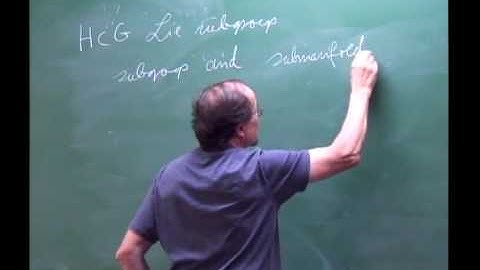 H ⊂ G Lie subgroup
subgroup and submanifold